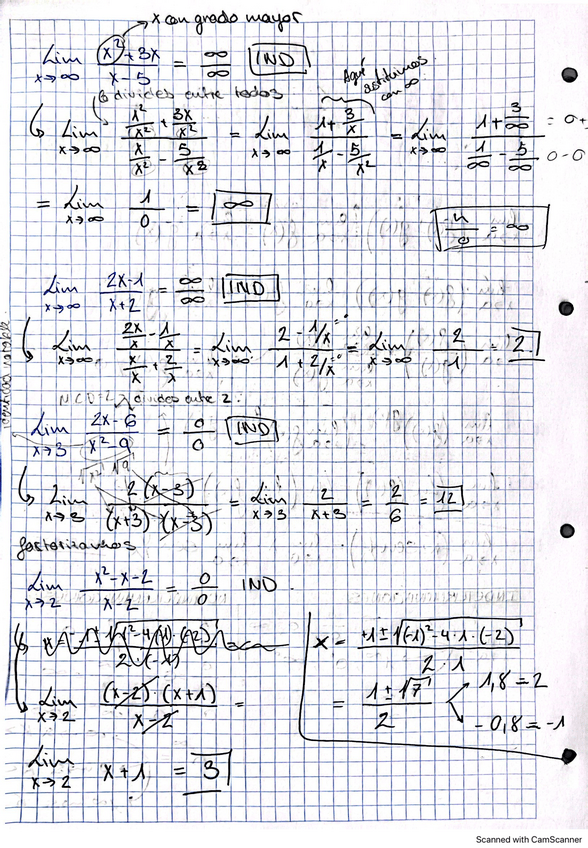 x con grado mayor
Lim x→∞ (x² + 3x)/(x - 5) = ∞/∞ [IND]
divides entre todos
Aquí sustituimos con ∞.
Lim x→∞ (x²/x² + 3x/x²)/(x/x² - 5/x²) = Lim x→∞ (1 + 3/x)/(1/x - 5/x²) = Lim x→∞ (1 + 3/∞)/(1/∞ - 5/∞) = 0+ 0-0
= Lim x→∞ 1/0 = [∞]
-n/0 = ∞
Lim x→∞ (2x-1)/(x+2) = ∞/∞ [IND]
Lim x→∞ (2x/x - 1/x)/(x/x + 2/x) = Lim x→∞ (2 - 1/x)/(1 + 2/x) = Lim x→∞ 2/1 = [2]
divides entre 2.
Lim x→3 (2x - 6)/(x² - 9) = 0/0 [IND]
√x² √9
Lim x→3 2(x-3)/((x+3)·(x-3)) = Lim x→3 2/(x+3) = 2/6 = [12]
factorizamos
Lim x→2 (x² - x - 2)/(x - 2) = 0/0 IND.
x = (+1 ± √((-1)² - 4·1·(-2)))/(2·1)
= (1 ± √7)/2
1,8 = 2
-0,8 = -1
Lim x→2 ((x-2)·(x+1))/(x-2) =
Lim x→2 x+1 = [3]
Scanned with CamScanner